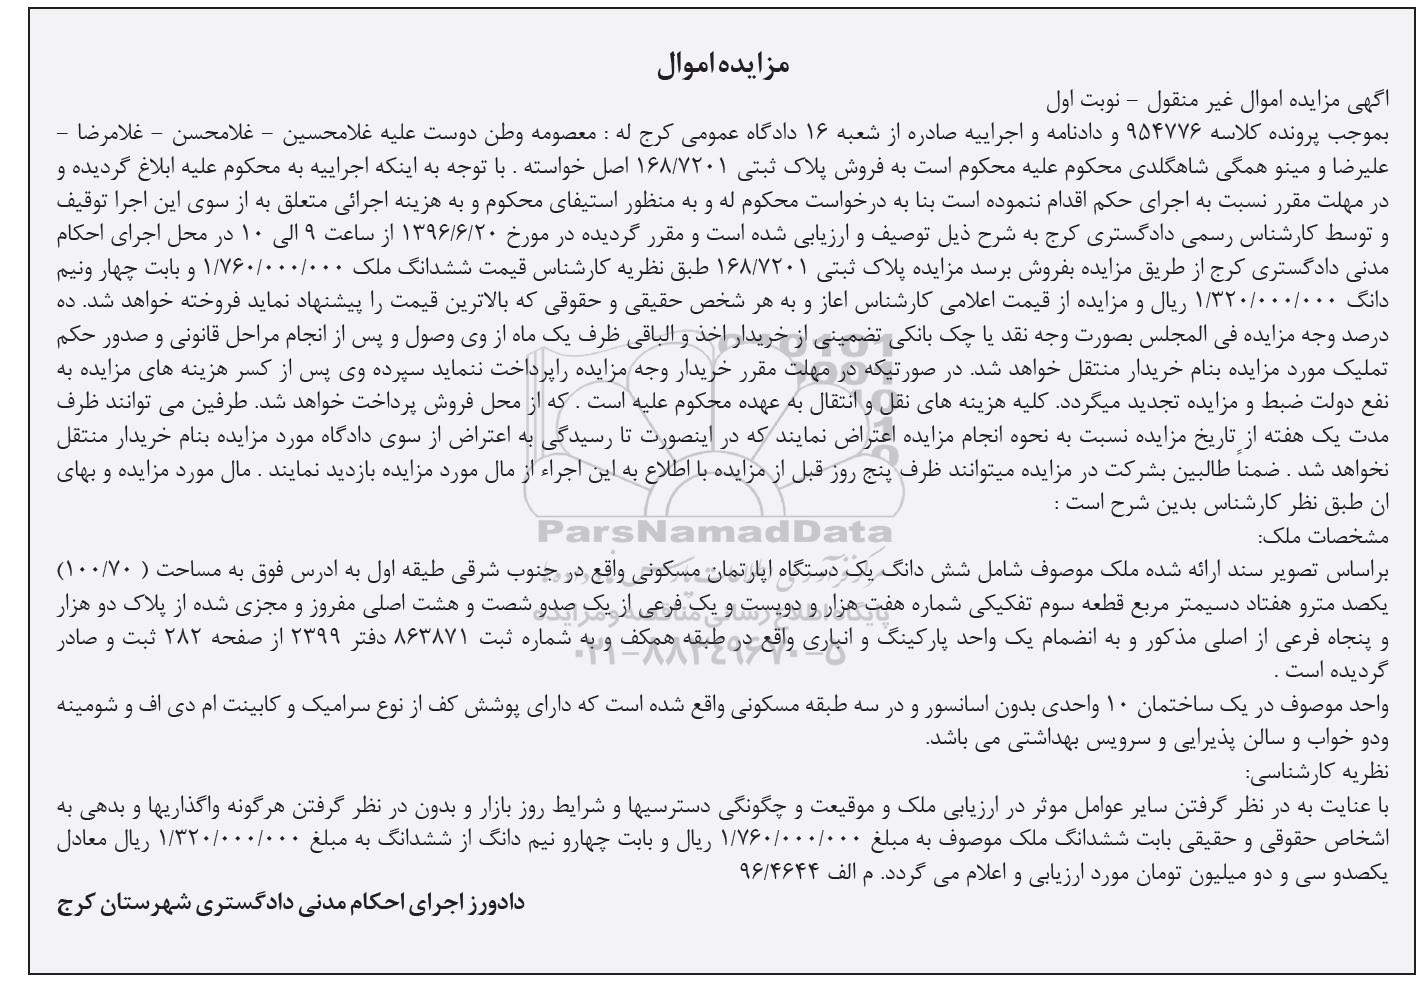 مزایده اموال
اگهی مزایده اموال غیر منقول – نوبت اول
بموجب پرونده کلاسه ۹۵۴۷۷۶ و دادنامه و اجراییه صادره از شعبه ۱۶ دادگاه عمومی کرج له : معصومه وطن دوست علیه غلامحسین – غلامحسن – غلامرضا –
علیرضا و مینو همگی شاهگلدی محکوم علیه محکوم است به فروش پلاک ثبتی ۱۶۸/۷۲۰۱ اصل خواسته . با توجه به اینکه اجراییه به محکوم علیه ابلاغ گردیده و
در مهلت مقرر نسبت به اجرای حکم اقدام ننموده است بنا به درخواست محکوم له و به منظور استیفای محکوم و به هزینه اجرائی متعلق به از سوی این اجرا توقیف
و توسط کارشناس رسمی دادگستری کرج به شرح ذیل توصیف و ارزیابی شده است و مقرر گردیده در مورخ ۱۳۹۶/۶/۲۰ از ساعت ۹ الی ۱۰ در محل اجرای احکام
مدنی دادگستری کرج از طریق مزایده بفروش برسد مزایده پلاک ثبتی ۱۶۸/۷۲۰۱ طبق نظریه کارشناس قیمت ششدانگ ملک ۱/۷۶۰/۰۰۰/۰۰۰ و بابت چهار ونیم
دانگ ۱/۳۲۰/۰۰۰/۰۰۰ ریال و مزایده از قیمت اعلامی کارشناس اعاز و به هر شخص حقیقی و حقوقی که بالاترین قیمت را پیشنهاد نماید فروخته خواهد شد. ده
درصد وجه مزایده فی المجلس بصورت وجه نقد یا چک بانکی تضمینی از خریدار اخذ و الباقی ظرف یک ماه از وی وصول و پس از انجام مراحل قانونی و صدور حکم
تملیک مورد مزایده بنام خریدار منتقل خواهد شد. در صورتیکه در مهلت مقرر خریدار وجه مزایده راپرداخت ننماید سپرده وی پس از کسر هزینه های مزایده به
نفع دولت ضبط و مزایده تجدید میگردد. کلیه هزینه های نقل و انتقال به عهده محکوم علیه است . که از محل فروش پرداخت خواهد شد. طرفین می توانند ظرف
مدت یک هفته از تاریخ مزایده نسبت به نحوه انجام مزایده اعتراض نمایند که در اینصورت تا رسیدگی به اعتراض از سوی دادگاه مورد مزایده بنام خریدار منتقل
نخواهد شد . ضمناً طالبین بشرکت در مزایده میتوانند ظرف پنج روز قبل از مزایده با اطلاع به این اجراء از مال مورد مزایده بازدید نمایند . مال مورد مزایده و بهای
ان طبق نظر کارشناس بدین شرح است :
ParsNamadData
مشخصات ملک:
براساس تصویر سند ارائه شده ملک موصوف شامل شش دانگ یک دستگاه اپارتمان مسکونی واقع در جنوب شرقی طیقه اول به ادرس فوق به مساحت ( ۱۰۰/۷۰)
یکصد مترو هفتاد دسیمتر مربع قطعه سوم تفکیکی شماره هفت هزار و دویست و یک فرعی از یک صدو شصت و هشت اصلی مفروز و مجزی شده از پلاک دو هزار
پایگاه اطلاع رسانی مناقصه و مزایده
و پنجاه فرعی از اصلی مذکور و به انضمام یک واحد پارکینگ و انباری واقع در طبقه همکف و به شماره ثبت ۸۶۳۸۷۱ دفتر ۲۳۹۹ از صفحه ۲۸۲ ثبت و صادر
۰۲۱-۸۸۳۴۹۶۷۰-۵
گردیده است .
واحد موصوف در یک ساختمان ۱۰ واحدی بدون اسانسور و در سه طبقه مسکونی واقع شده است که دارای پوشش کف از نوع سرامیک و کابینت ام دی اف و شومینه
ودو خواب و سالن پذیرایی و سرویس بهداشتی می باشد.
نظریه کارشناسی:
با عنایت به در نظر گرفتن سایر عوامل موثر در ارزیابی ملک و موقیعت و چگونگی دسترسیها و شرایط روز بازار و بدون در نظر گرفتن هرگونه واگذاریها و بدهی به
اشخاص حقوقی و حقیقی بابت ششدانگ ملک موصوف به مبلغ ۱/۷۶۰/۰۰۰/۰۰۰ ریال و بابت چهارو نیم دانگ از ششدانگ به مبلغ ۱/۳۲۰/۰۰۰/۰۰۰ ریال معادل
یکصدو سی و دو میلیون تومان مورد ارزیابی و اعلام می گردد. م الف ۹۶/۴۶۴۴
دادورز اجرای احکام مدنی دادگستری شهرستان کرج